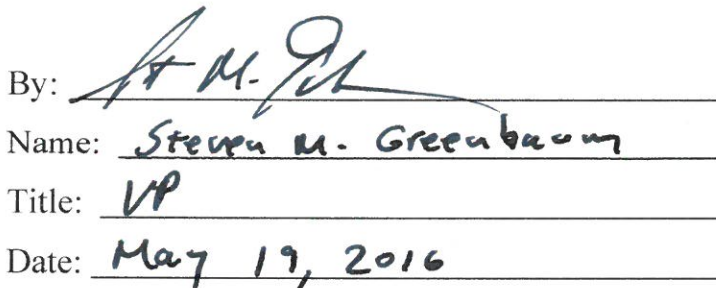 By:
Name: Steven M. Greenbaum
Title: VP
Date: May 19, 2016